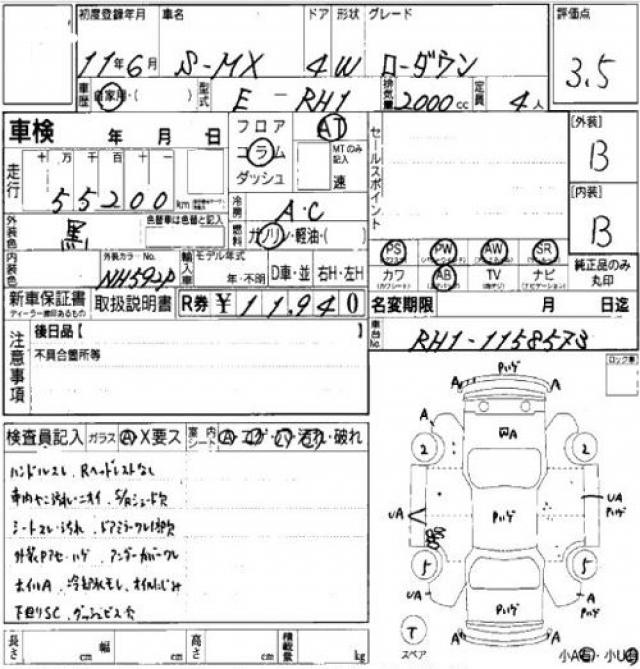 初度登録年月 車名 ドア 形状 グレード 評価点
11年6月 S-MX 4 W ローダウン 3.5
車歴 自家用・( ) 型式 E - RH1 排気量 2000cc 定員 4人
車検 年 月 日
フロア AT
コラム MTのみ記入
ダッシュ 速
セールスポイント
[外装]
B
[内装]
B
走行 十 万 千 百 十 一
55200 km
冷房 A・C
外装色 黒 色替車は色替と記入
燃料 ガソリン・軽油・( )
PS PW AW SR
カワ AB TV ナビ
純正品のみ丸印
内装色 外装カラーNo. NH592P
輸入車 モデル年式 年・不明 D車・並 右H・左H
新車保証書 取扱説明書 R券 ¥11,940
ディーラー捺印あるもの
名変期限 月 日迄
注意事項 後日品【
不具合箇所等
車台No. RH1-1158573
ロック車
検査員記入 ガラス A X要ス 室内シート A・コゲ・穴・汚れ・破れ
ハンドルスレ、Rヘッドレストなし
シートスレ・汚れ、ドアミラーウレ
外装Pアセ・ハゲ、アンダーカバーワレ
ホイルA、冷却水モレ、オイルにじみ
下廻りSC、ダッシュビス穴
Pハゲ
A A
A WA A
2 2
UA Pハゲ UA Pハゲ
5 5
UA A Pハゲ
Pハゲ
A A
T
スペア
小A 小U
長さ cm 幅 cm 高さ cm 積載量 kg